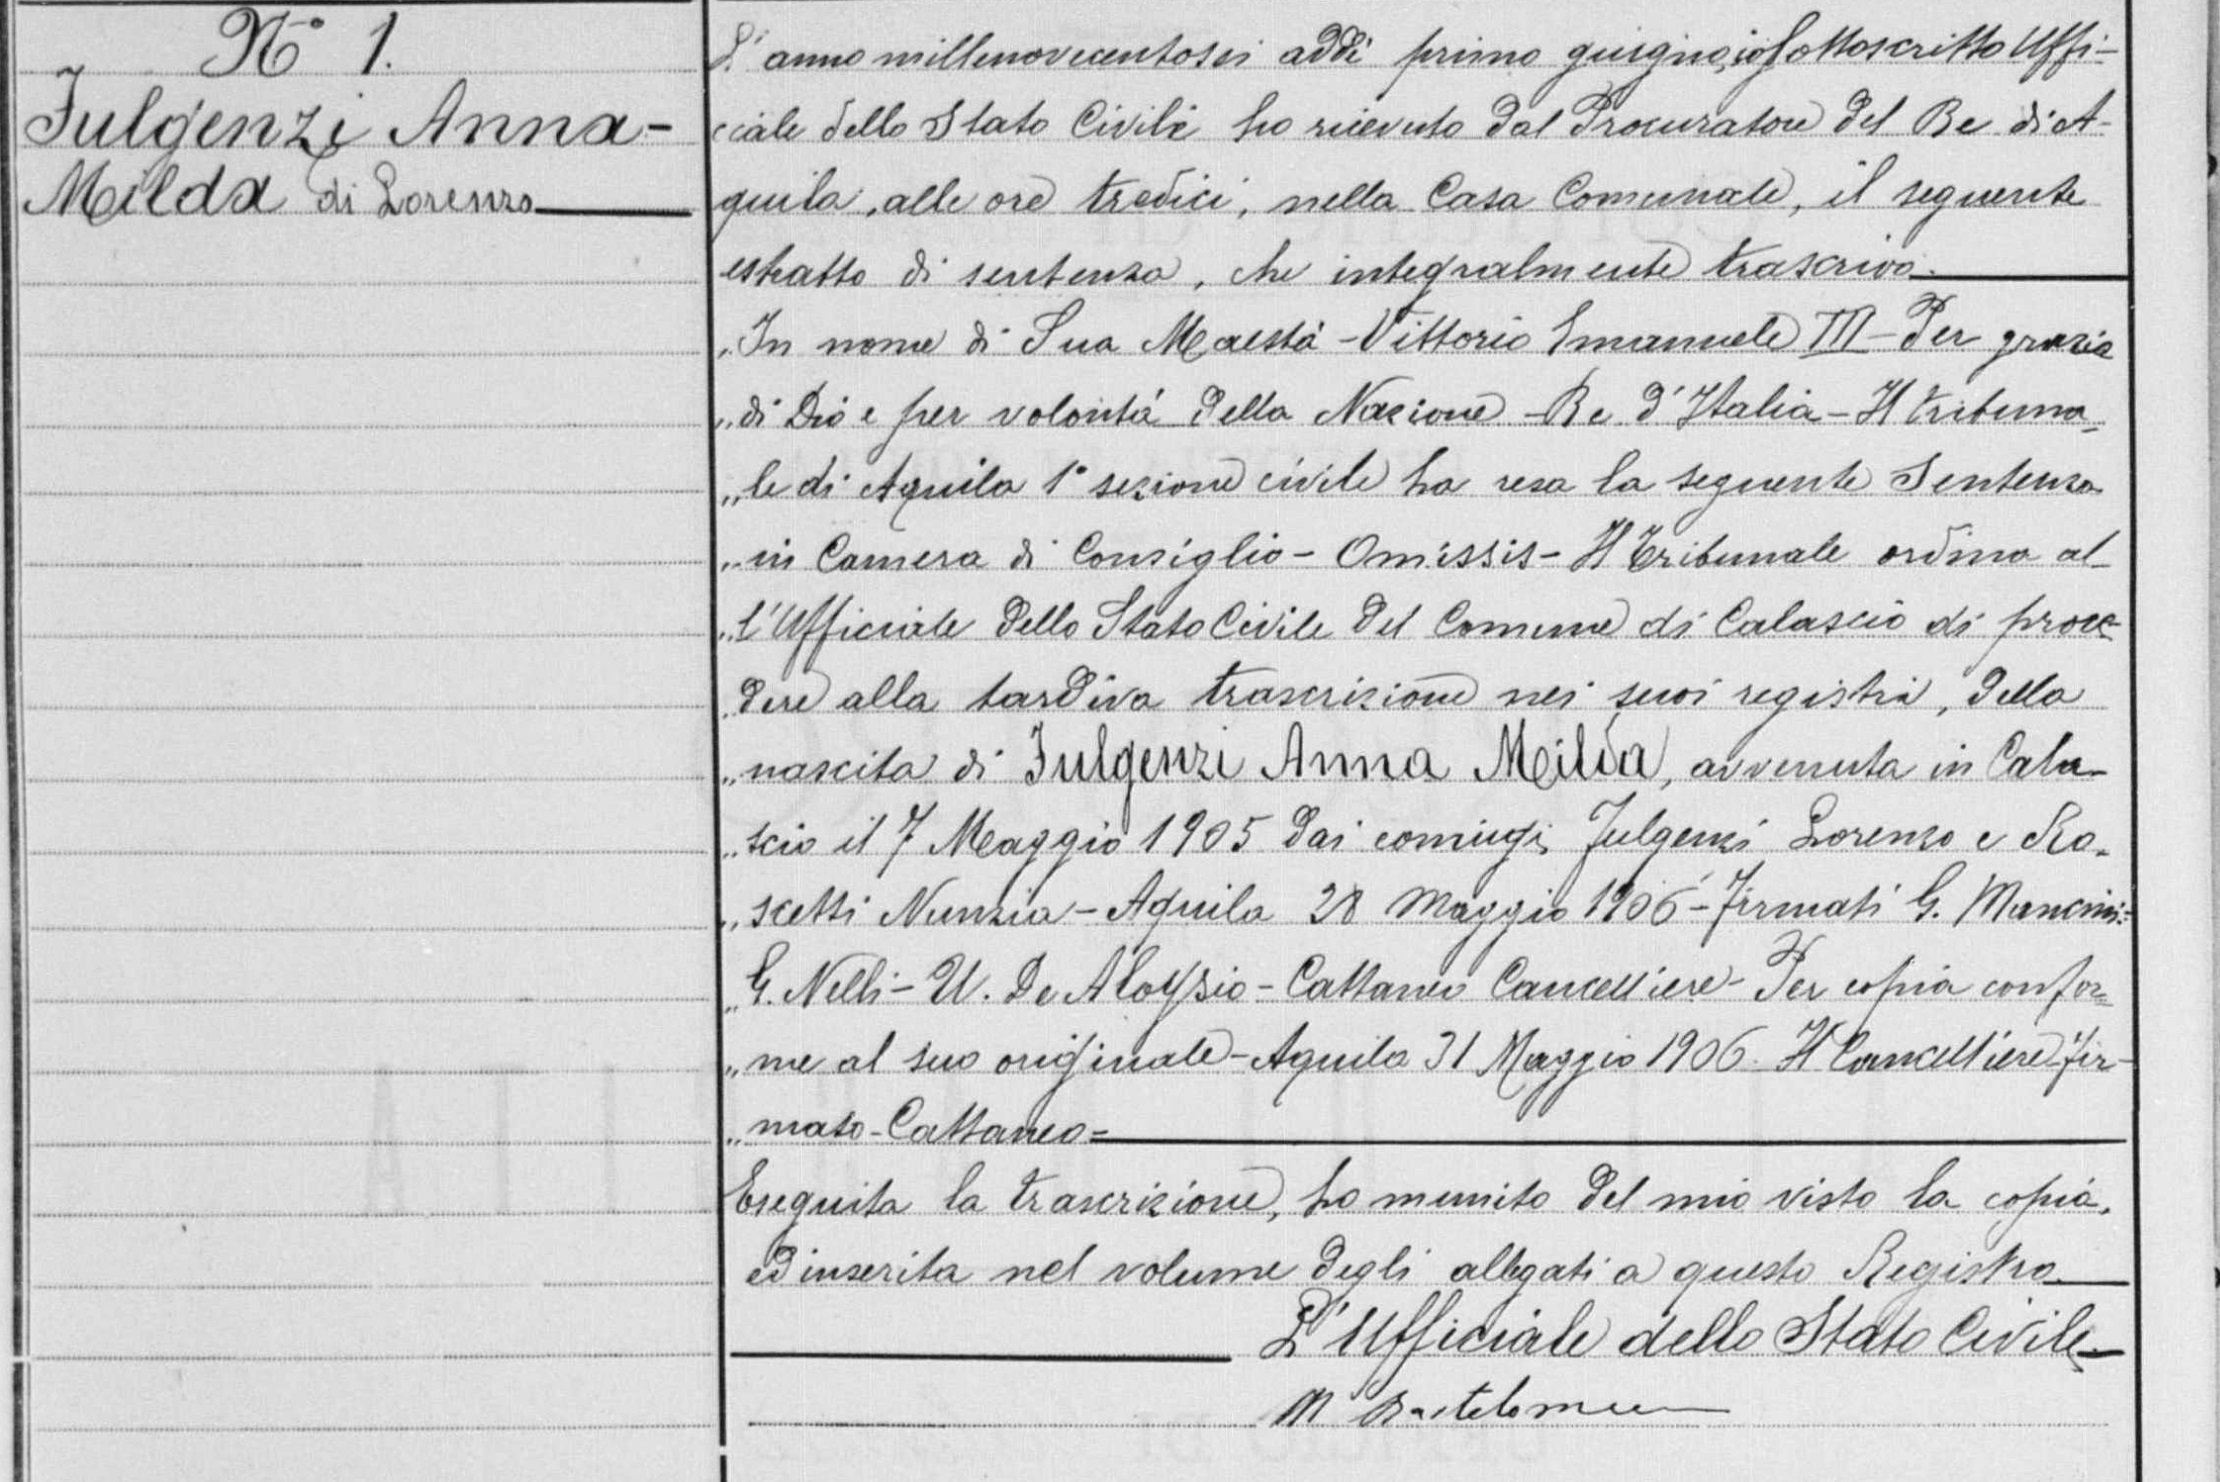 N° 1.
Fulgenzi Anna-
Milda di Lorenzo
L'anno millenovecentosei addì primo giugno, io sottoscritto Uffi-
ciale dello Stato Civile ho ricevuto dal Procuratore del Re di A-
quila, alle ore tredici, nella Casa Comunale, il seguente
estratto di sentenza, che integralmente trascrivo.
„In nome di Sua Maestà - Vittorio Emanuele III - Per grazia
„di Dio e per volontà della Nazione - Re d'Italia - Il tribuna-
„le di Aquila 1° sezione civile ha resa la seguente Sentenza
„in Camera di Consiglio - Omissis - Il Tribunale ordina al-
„l'Ufficiale dello Stato Civile del Comune di Calascio di proce-
„dere alla tardiva trascrizione nei suoi registri, della
„nascita di Fulgenzi Anna Milda, avvenuta in Cala-
„scio il 7 Maggio 1905 dai coniugi Fulgenzi Lorenzo e Ro-
„scetti Nunzia - Aquila 28 Maggio 1906 - Firmati G. Mancini -
„G. Nelli - U. De Aloysio - Cattaneo Cancelliere - Per copia confor-
„me al suo originale - Aquila 31 Maggio 1906. Il Cancelliere Fir-
„mato - Cattaneo =
Eseguita la trascrizione, ho munito del mio visto la copia,
ed inserita nel volume degli allegati a questo Registro.
L'Ufficiale dello Stato Civile